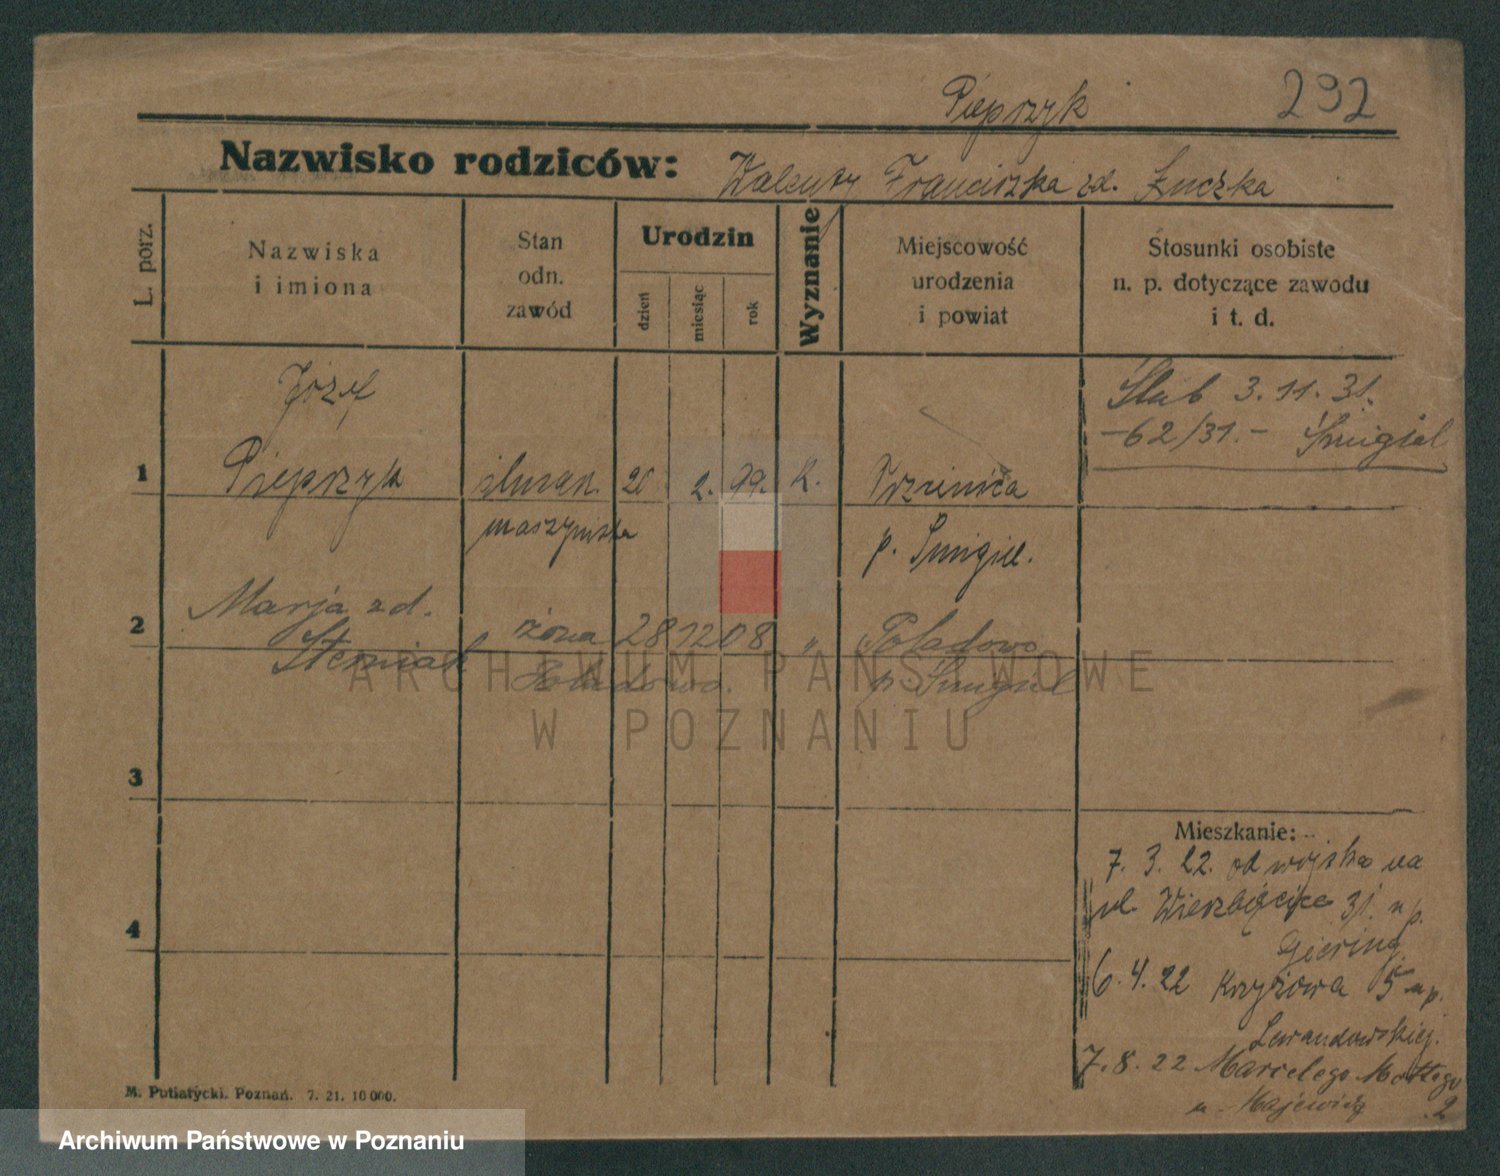 Pieprzyk 292
Nazwisko rodziców: Walenty Franciszka zd. Łuczka
L. porz.
Nazwiska
i imiona
Stan
odn.
zawód
Urodzin
dzień
miesiąc
rok
Wyznanie
Miejscowość
urodzenia
i powiat
Stosunki osobiste
n. p. dotyczące zawodu
i t. d.
Józef
Ślub 3. 11. 31.
-62/31.- Śmigiel
1 Pieprzyk 2. 99. K.
maszynista p. Śmigiel.
Marja zd.
2 żona 28 12 08 „ Poladowo
Poladowo. p. Śmigiel
3
Mieszkanie:
7. 3. 22. od wojska na
ul. Wierzbięcice 31. u p.
4 Giering
6. 4. 22 Krzyżowa 5 u p.
Lewandowskiej.
7. 8. 22 Marcelego Mottego
2
M. Putiatycki. Poznań. 7. 21. 10 000.
ARCHIWUM PAŃSTWOWE
W POZNANIU
Archiwum Państwowe w Poznaniu